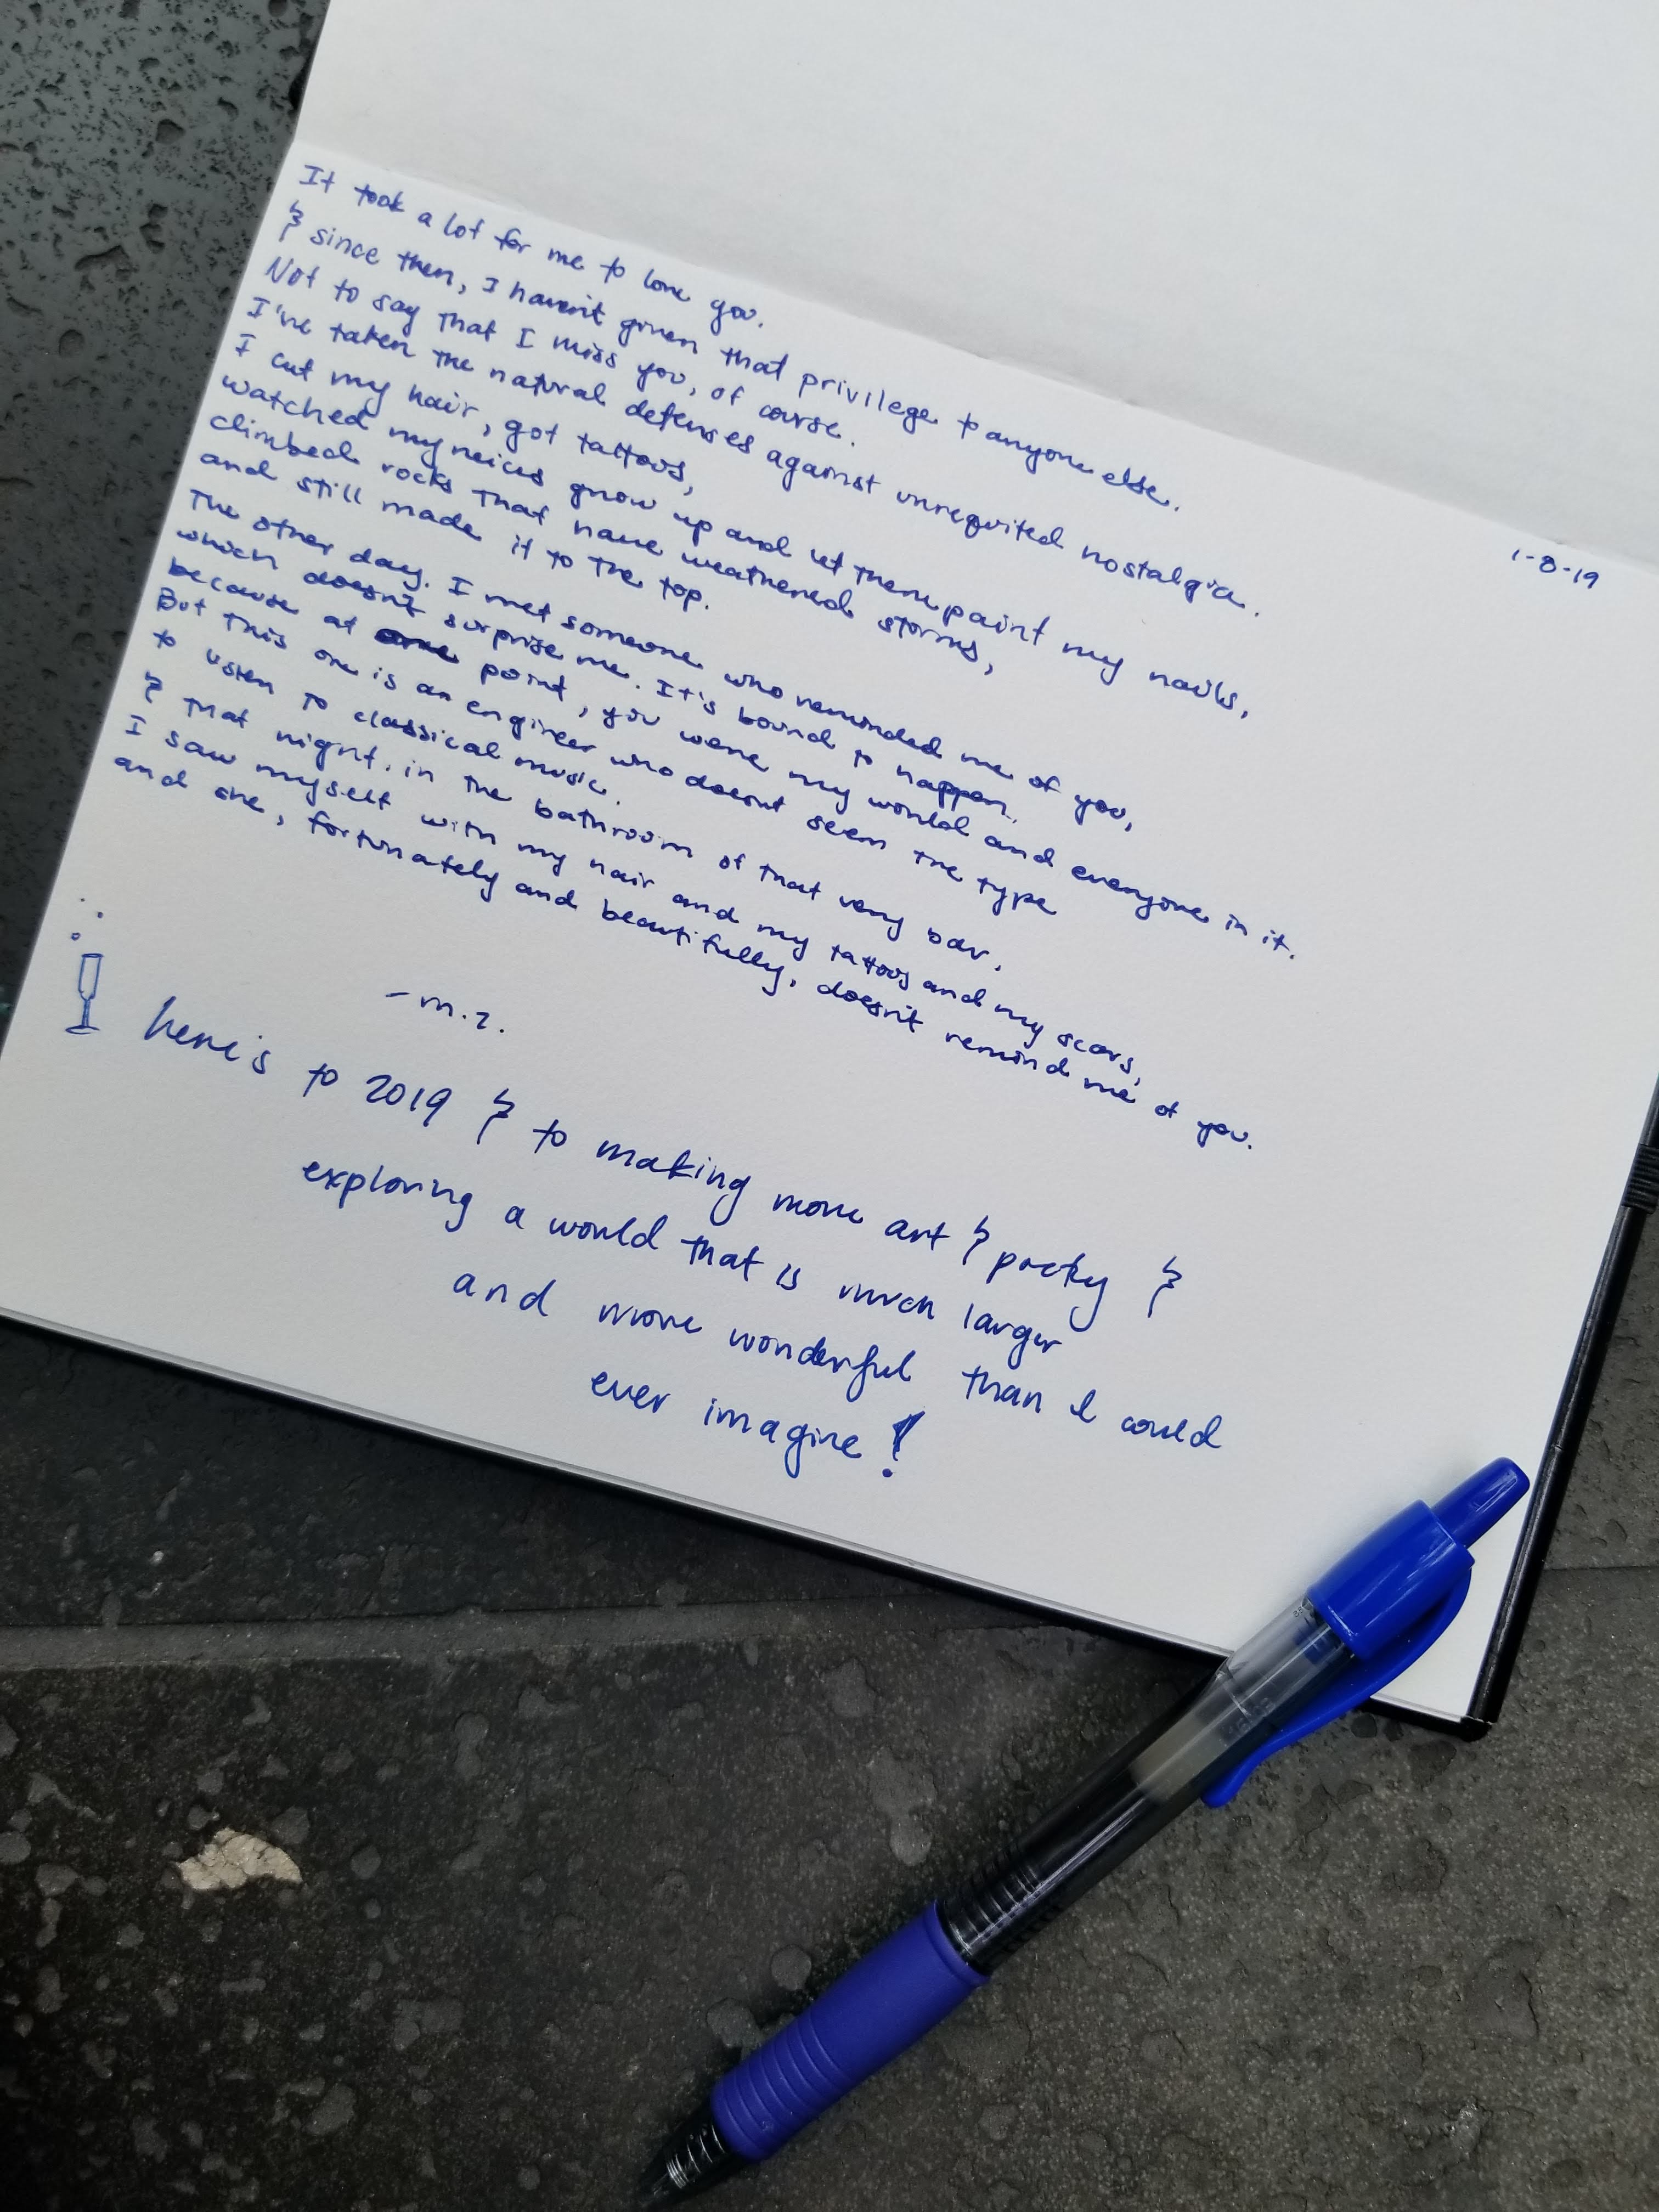 1-8-19
It took a lot for me to love you.
& since then, I haven't given that privilege to anyone else.
Not to say that I miss you, of course.
I've taken the natural defenses against unrequited nostalgia.
I cut my hair, got tattoos,
watched my neices grow up and let them paint my nails,
climbed rocks that have weathered storms,
and still made it to the top.
The other day. I met someone who reminded me of you,
which doesn't surprise me. It's bound to happen.
because at one point, you were my world and everyone in it.
But this one is an engineer who doesn't seem the type
to listen to classical music.
& that night, in the bathroom of that very bar,
I saw myself with my hair and my tattoos and my scars,
and she, fortunately and beautifully, doesn't remind me of you.
-m.z.
here's to 2019 & to making more art & poetry &
exploring a world that is much larger
and more wonderful than I could
ever imagine!